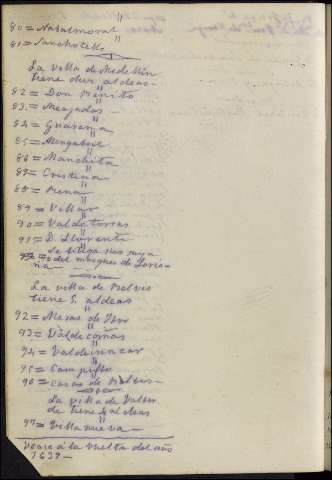 80= Navalmoral
81= Sanchotello
La villa de Medellin
tiene diez aldeas -
82= Don Benito
83= Meajadas -
84= Guareña
85= Mengabril
86= Manchita
87= Cristina
88= Rena
89= Villar
90= Valdetorres
91= D. Llorente
del marques de Loria-
na -
La villa de Belvis
tiene 5 aldeas
92= Mesas de Ibor
93= Valdecañas
94= Valdehuncar
95= Campillo
96= casas de Belvis -
La villa de
de tiene 4 aldeas
97= Villanueva -
Vease á la vuelta del año
1639 -